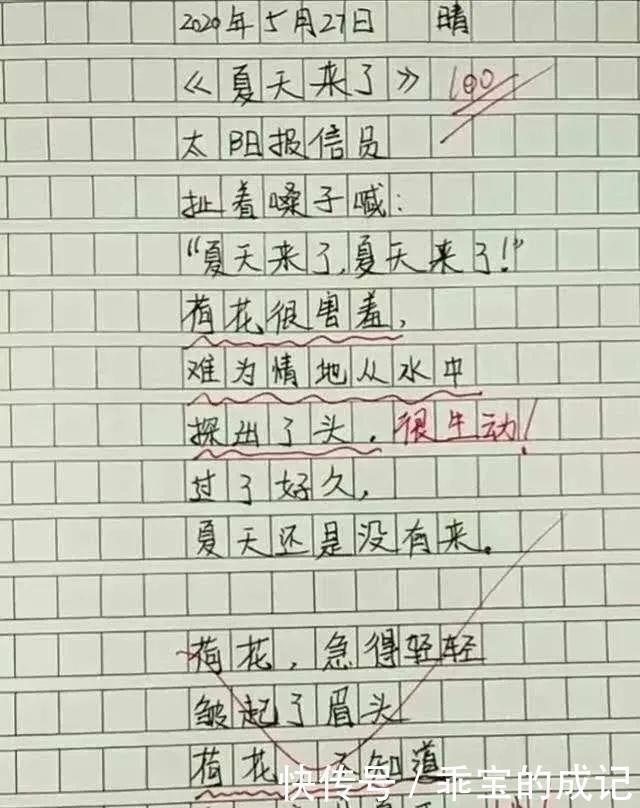 2020年5月27日 晴
《夏天来了》 100
太阳报信员
扯着嗓子喊:
“夏天来了,夏天来了!”
荷花很害羞,
难为情地从水中
探出了头。很生动!
过了好久,
夏天还是没有来。
荷花,急得轻轻
皱起了眉头
荷花 不知道
快传号/乖宝的成记